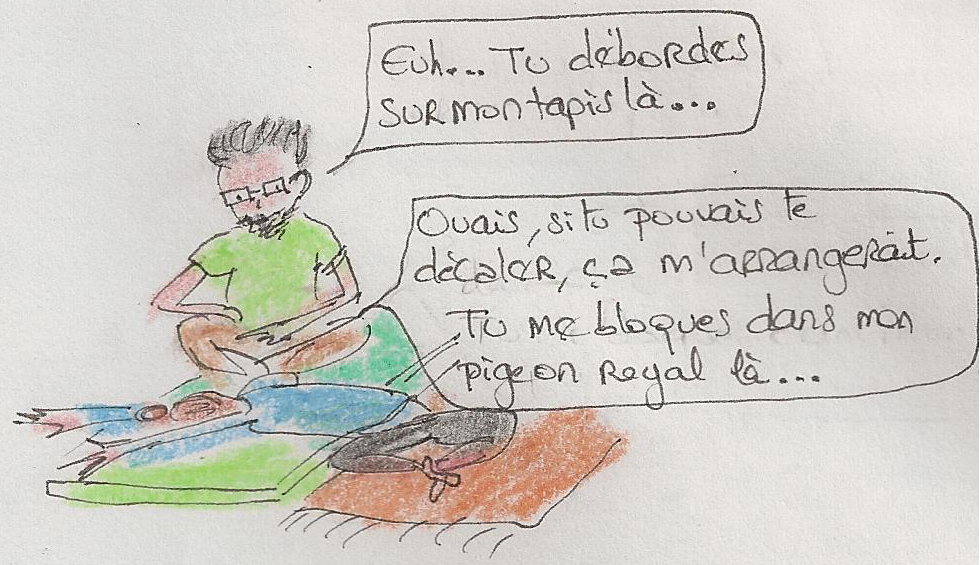 Euh... Tu débordes
sur mon tapis là...
Ouais, si tu pouvais te
décaler, ça m'arrangerait.
Tu me bloques dans mon
pigeon royal là...